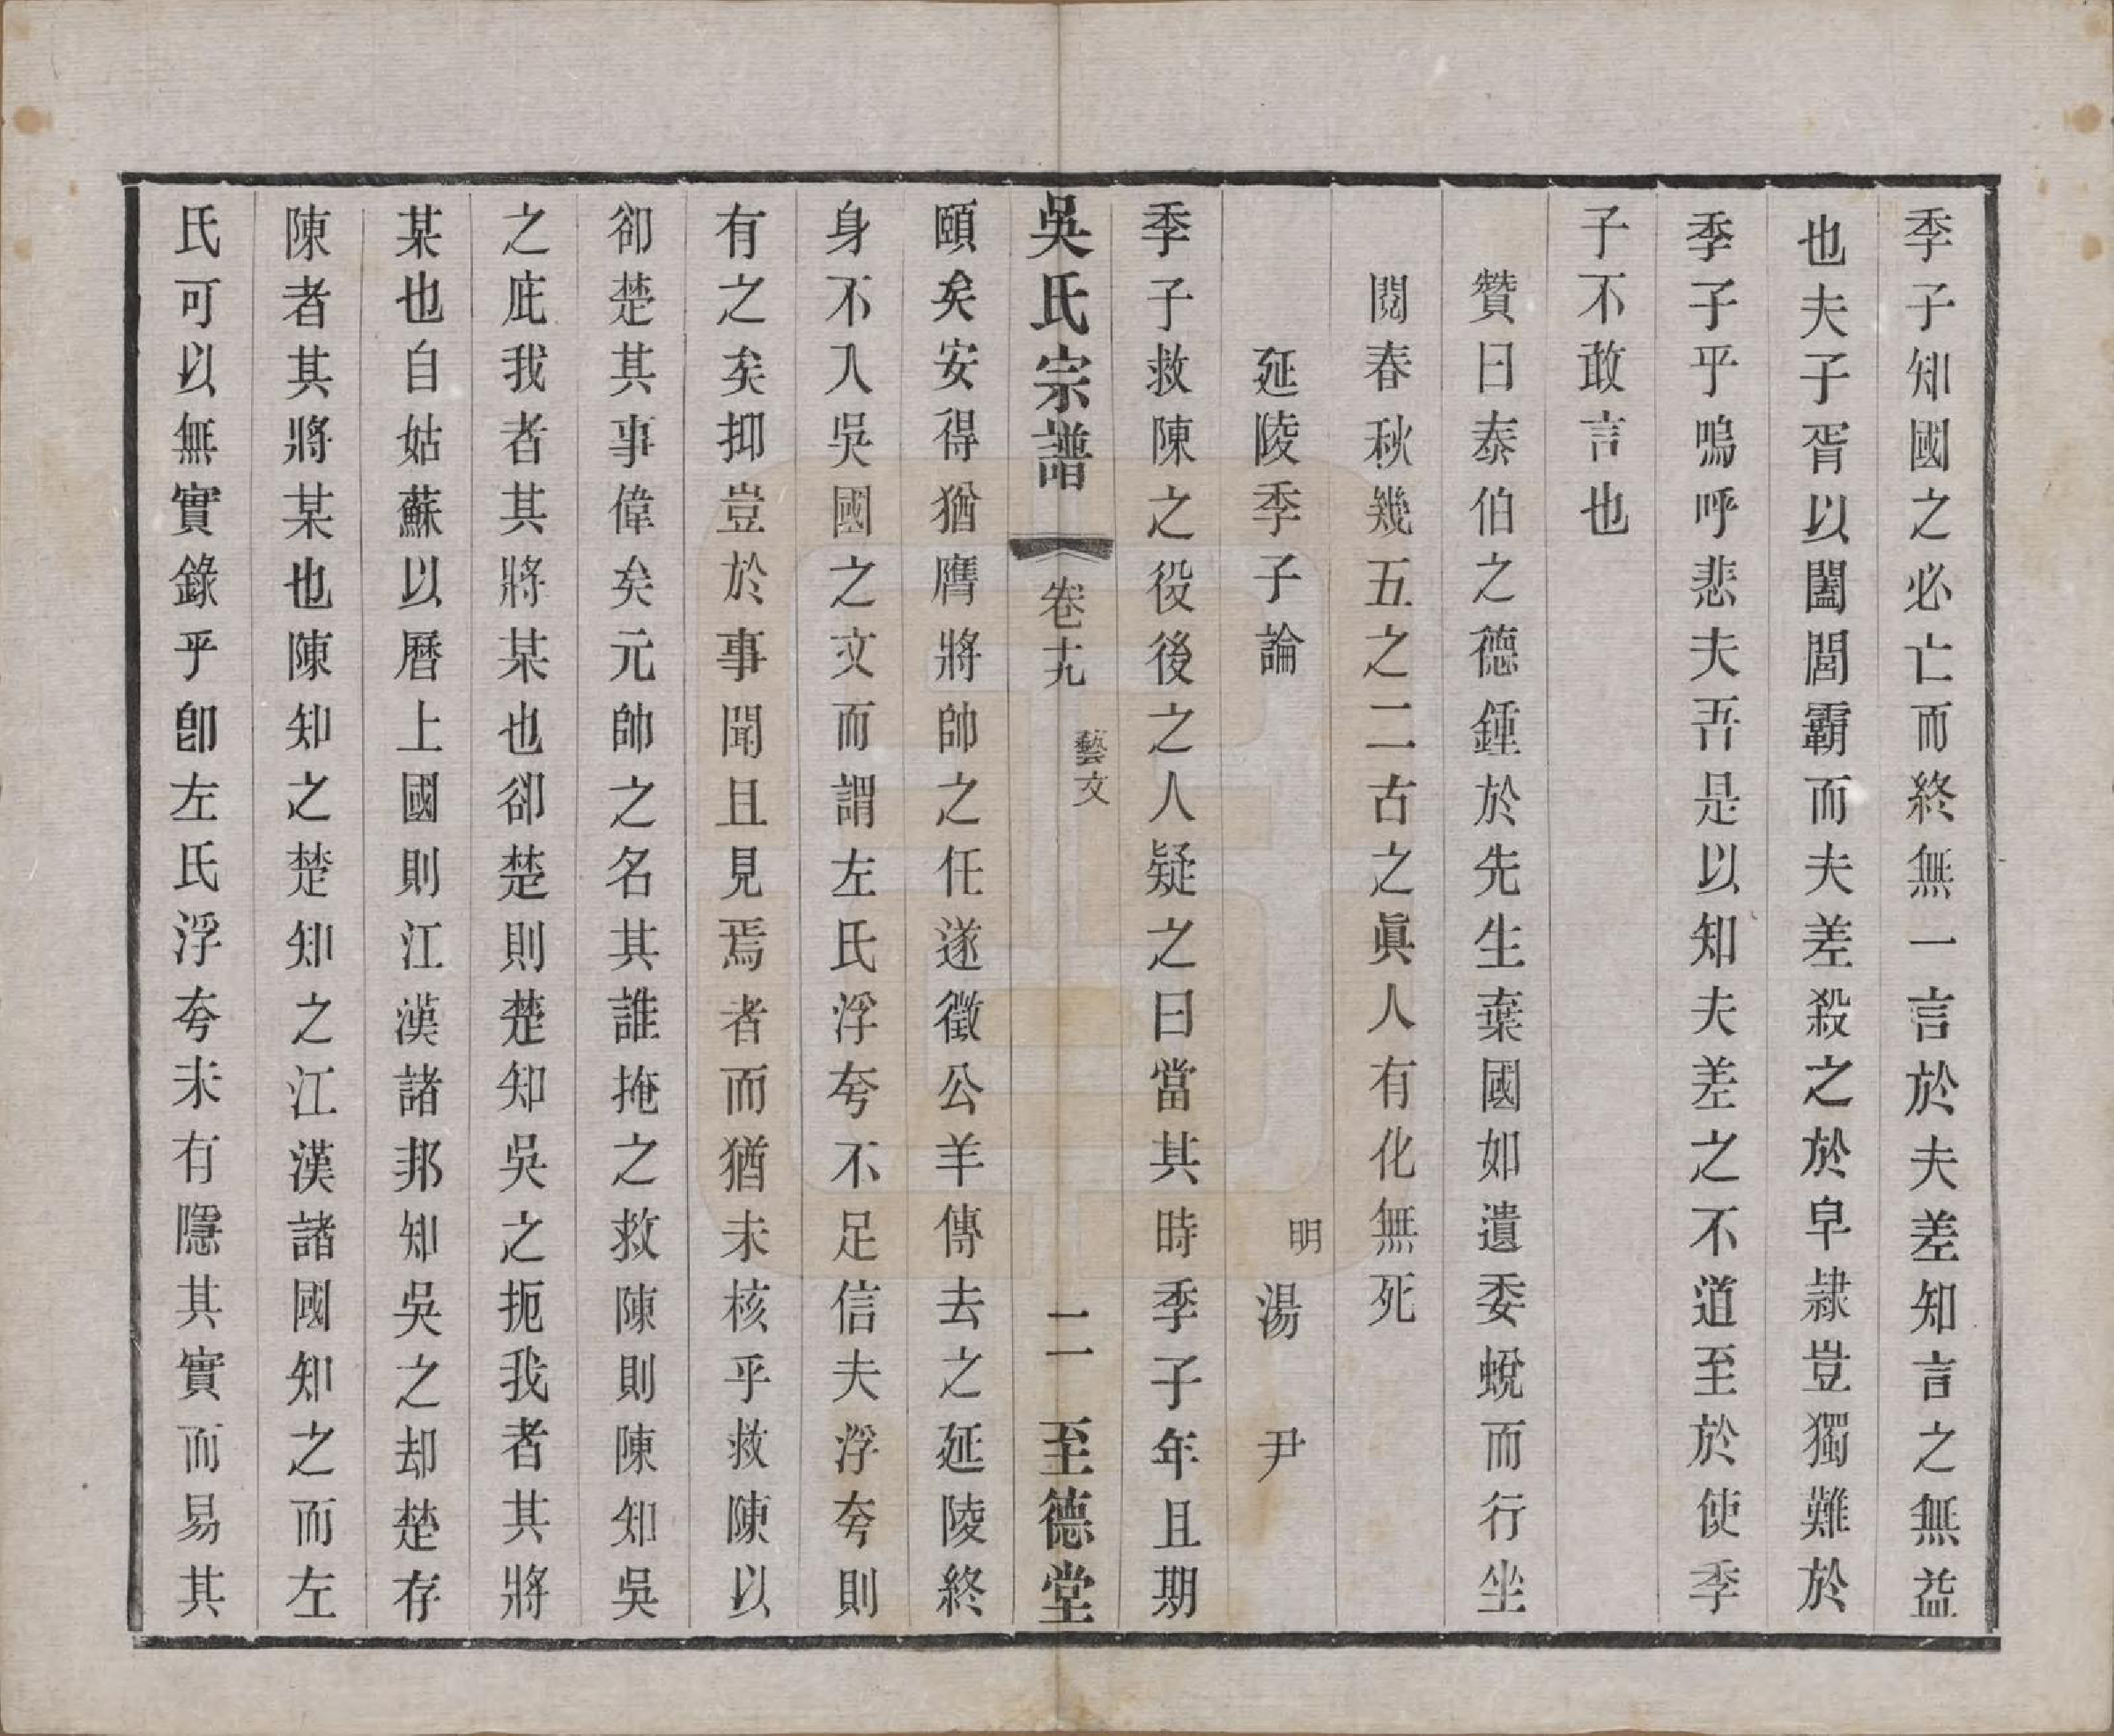 季子知國之必亡而終無一言於夫差知言之無益
也夫子胥以闔閭霸而夫差殺之於皁隷豈獨難於
季子乎嗚呼悲夫吾是以知夫差之不道至於使季
子不敢言也
贊曰泰伯之德鍾於先生棄國如遺委蛻而行坐
閱春秋幾五之二古之眞人有化無死
延陵季子論 明 湯尹
季子救陳之役後之人疑之曰當其時季子年且期
吳氏宗譜 卷十九 藝文 二 至德堂
頤矣安得猶膺將帥之任遂徵公羊傳去之延陵終
身不入吳國之文而謂左氏浮夸不足信夫浮夸則
有之矣抑豈於事聞且見焉者而猶未核乎救陳以
卻楚其事偉矣元帥之名其誰掩之救陳則陳知吳
之庇我者其將某也卻楚則楚知吳之扼我者其將
某也自姑蘇以曆上國則江漢諸邦知吳之却楚存
陳者其將某也陳知之楚知之江漢諸國知之而左
氏可以無實錄乎卽左氏浮夸未有隱其實而易其